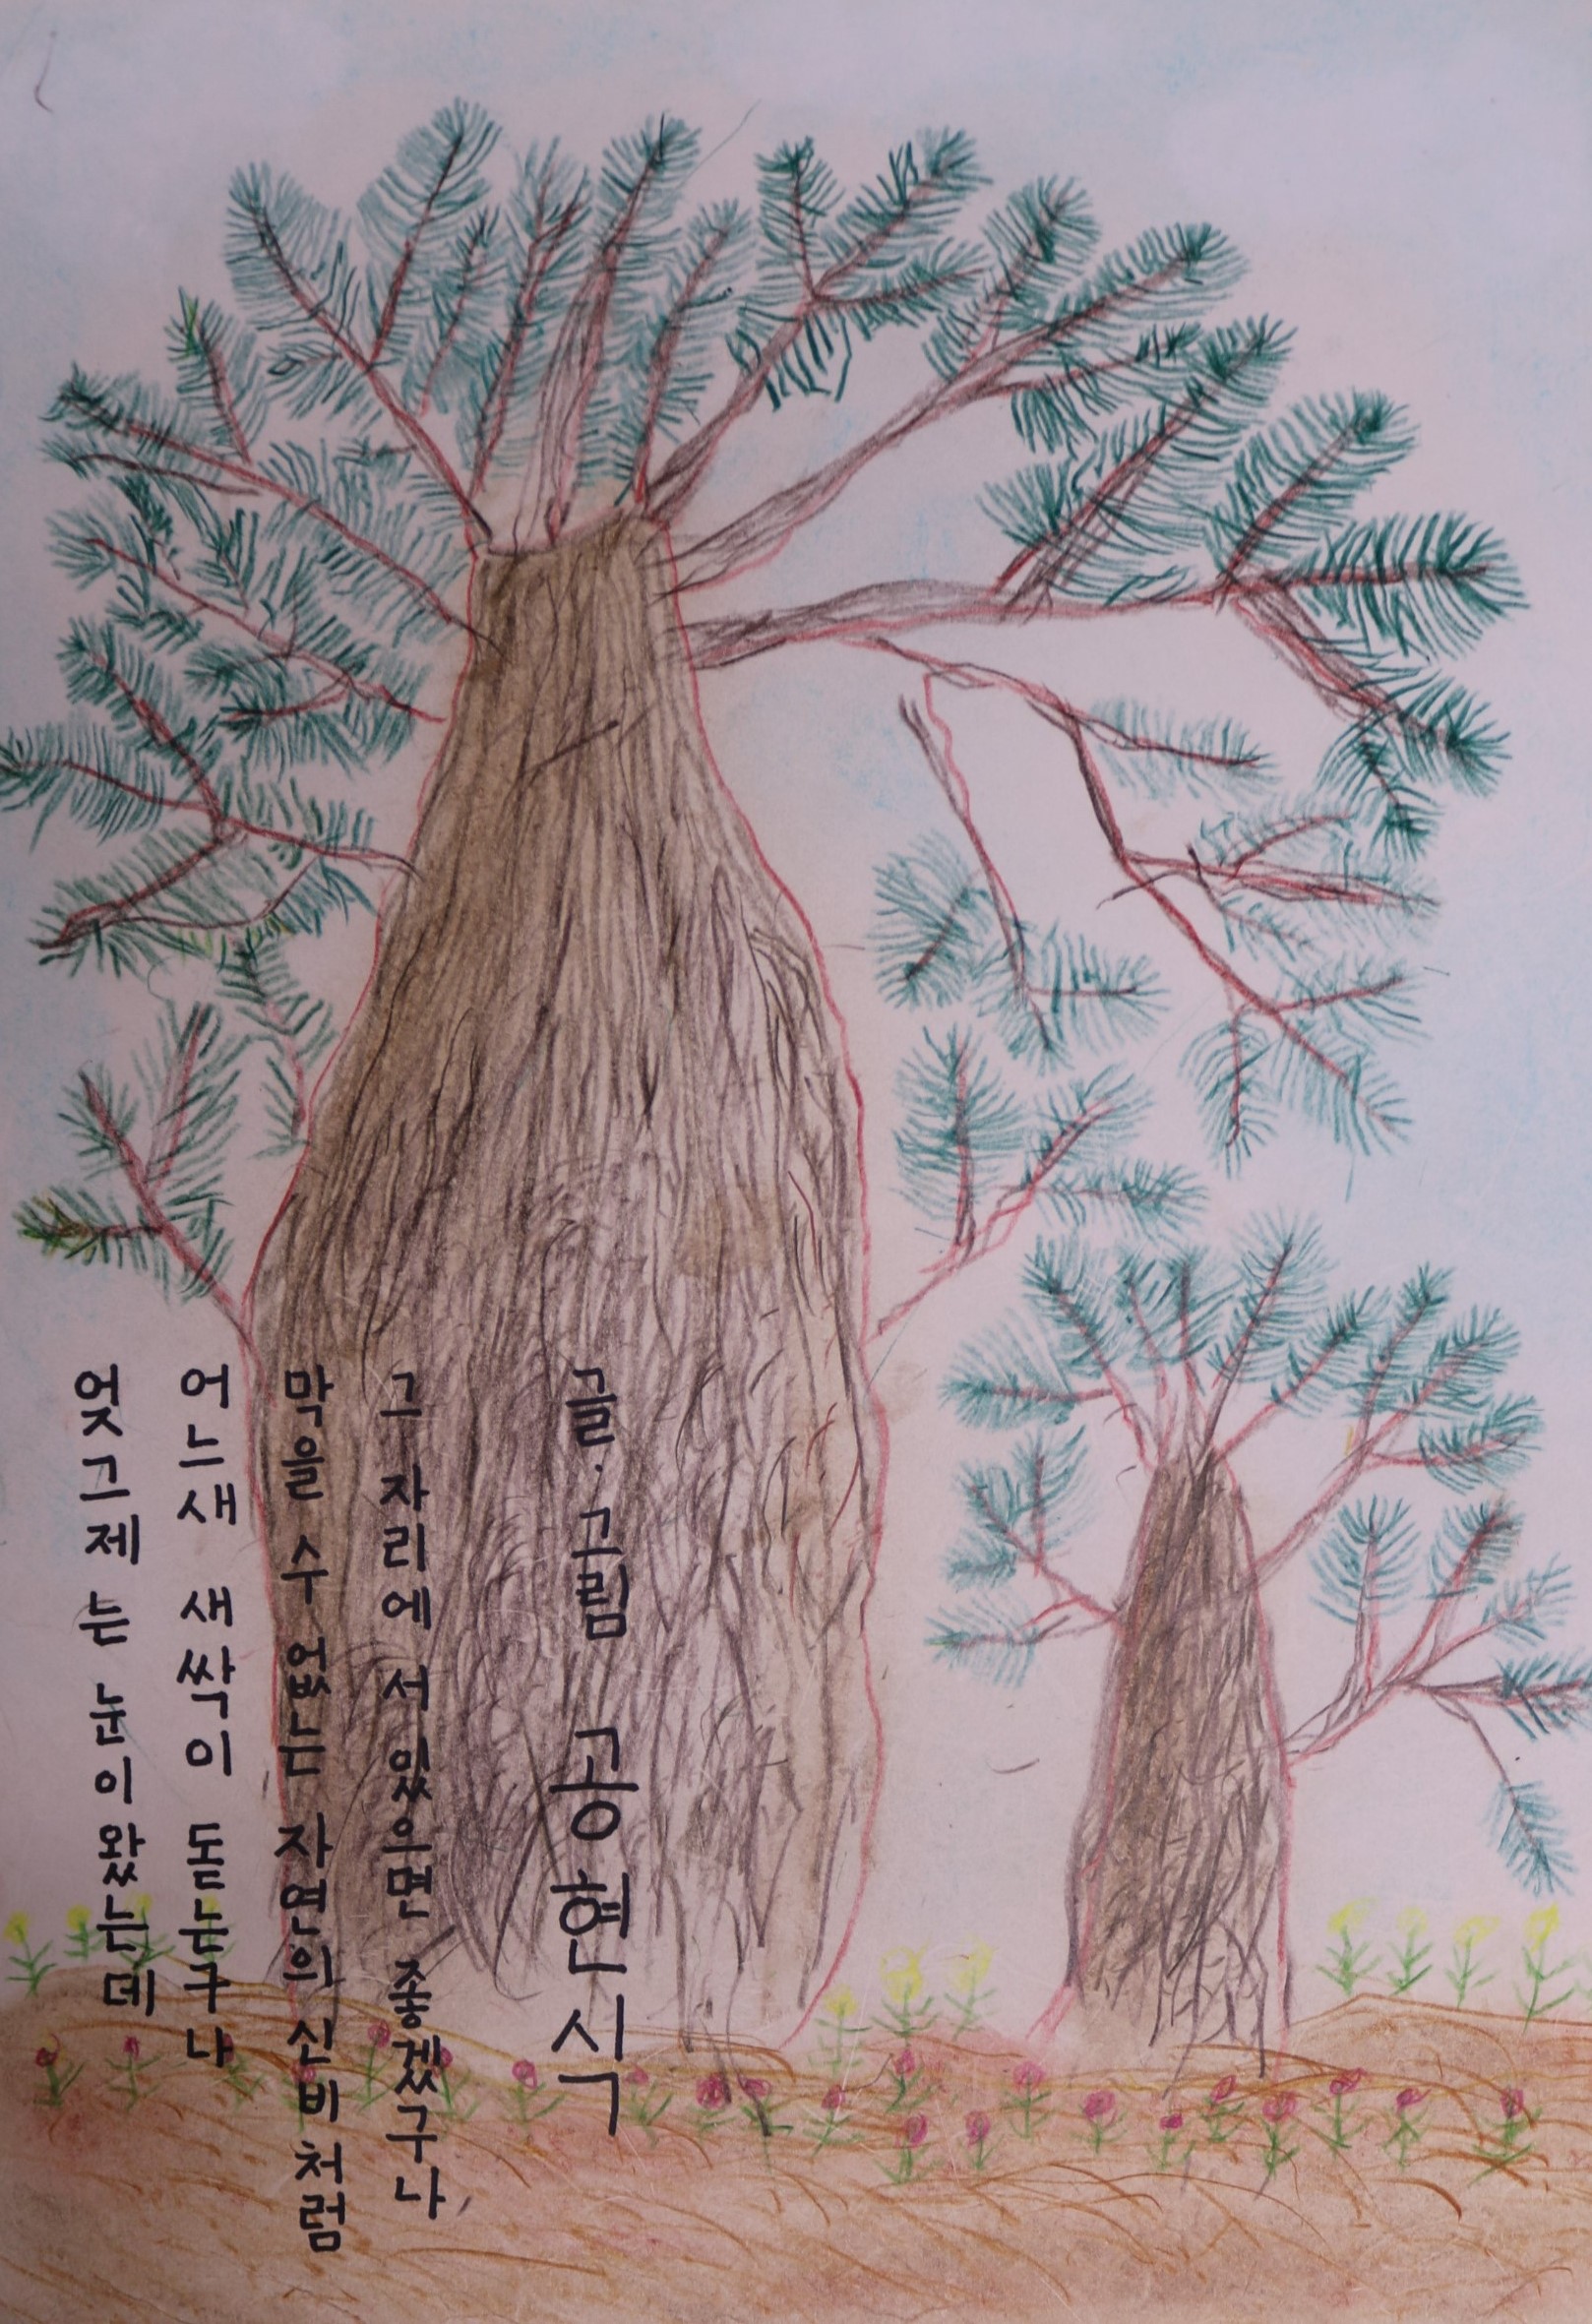 엊그제는 눈이 왔는데
어느새 새싹이 돋는구나
막을 수 없는 자연의 신비처럼
그 자리에 서 있으면 좋겠구나,
글·그림 공현식